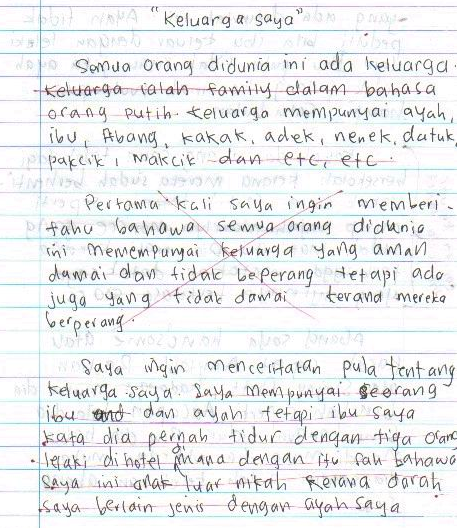 "Keluarga saya"
Semua orang didunia ini ada keluarga.
Keluarga ialah family dalam bahasa
orang putih. Keluarga mempunyai ayah,
ibu, Abang, kakak, adek, nenek, datuk,
pakcik, makcik dan etc, etc.
Pertama kali saya ingin memberi-
tahu bahawa semua orang didunia
ini memempunyai keluarga yang aman
damai dan tidak beperang tetapi ada
juga yang tidak damai kerana mereka
berperang.
Saya ingin menceritakan pula tentang
keluarga saya. Saya mempunyai seorang
ibu and dan ayah tetapi ibu saya
kata dia pernah tidur dengan tiga orang
lelaki di hotel mana dengan itu sah bahawa
saya ini anak luar nikah kerana darah
saya berlain jenis dengan ayah saya